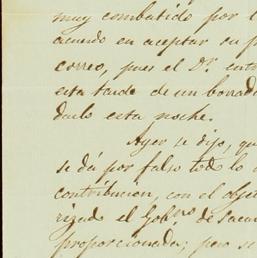 muy combatido por l
acuerdo en aceptar su p
correo, pues el Dr. ent
esta tarde de un borrad
darlo esta noche.
Ayer se dijo, qu
se dá por falso todo lo
contribucion, con el obje
rizado el Gobno. de Zaca
proporcionada; pero se